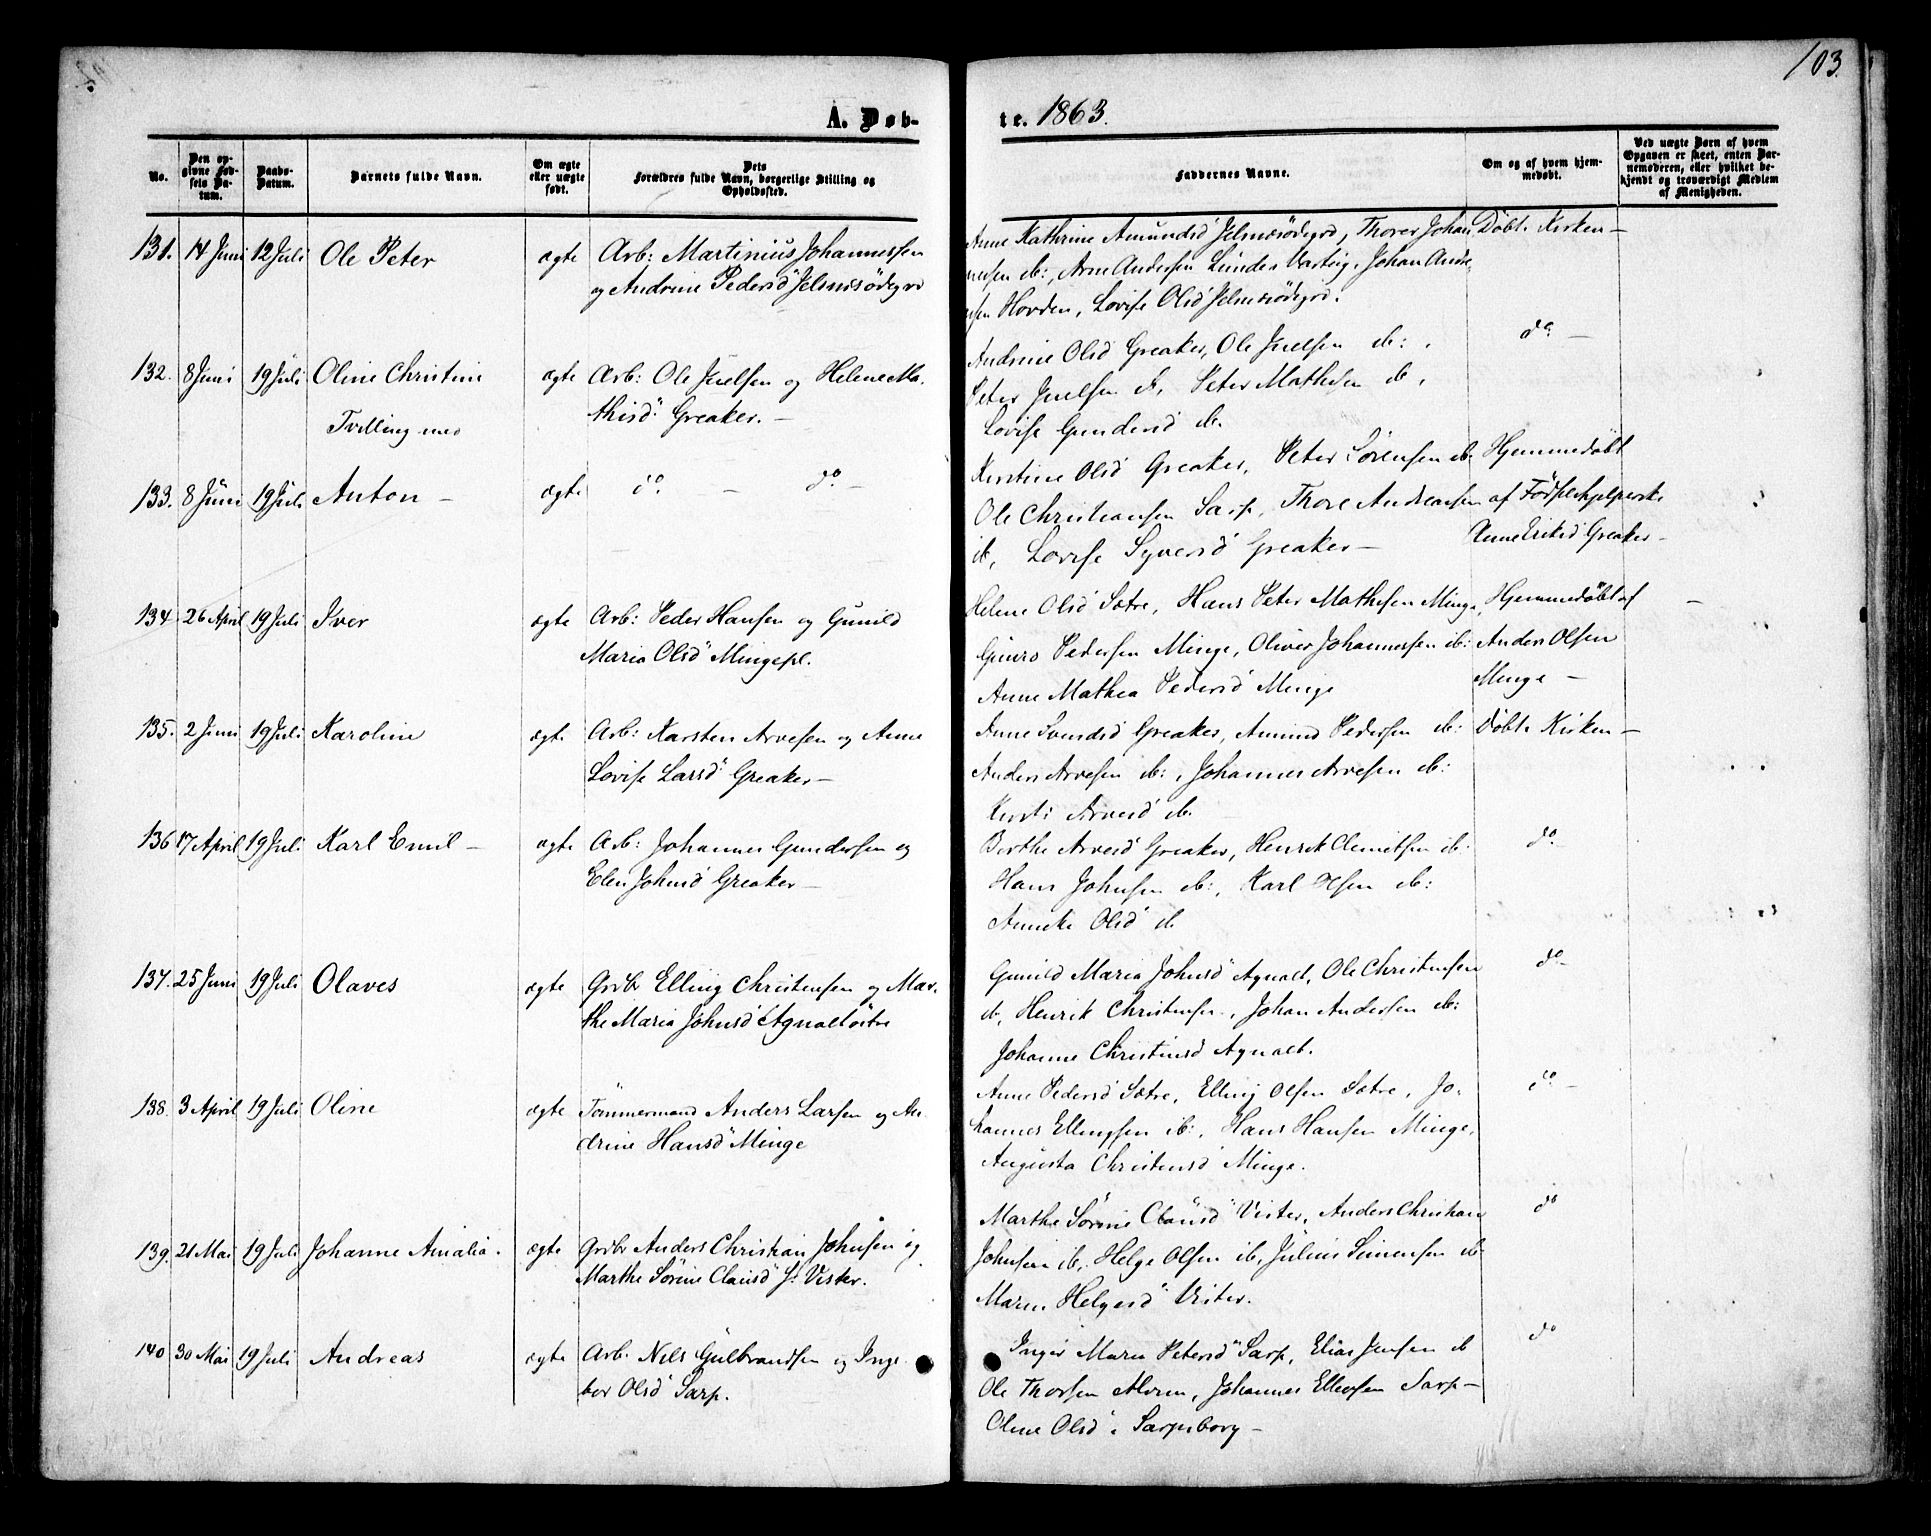 103.
A. Døb-
te. 1863.
No.
Den op-
givne Fød-
sels Da-
tum.
Daabs-
Datum.
Barnets fulde Navn.
Om ægte
eller uægte
født.
Dets
Forældres fulde Navn, borgerlige Stilling og
Opholdssted.
Faddernes Navne.
Om og af hvem hjem-
medøbt.
Ved uægte Børn af hvem
Opgaven er skeet, enten Bar-
nemoderen, eller hvilket be-
kjendt og troværdigt Medlem
af Menigheden.
131. 14 Juni 12 Juli Ole Peter ægte Arb: Martinius Johannessen
og Andrine Pedersd Jelsnæsødegrd
Anne Kathrine Amundsd Jelsnæsødegrd, Thorer Johan-
nesen ib:, Arne Andersen Lunde Varteig, Johan Andre-
sen Hovden, Lovise Olsd Jelsnæsødegrd:
Døbt i Kirken —
132. 8 Juni 19 Juli Oline Christine ægte Arb: Ole Juelsen og Helene Ma-
Tvilling med thisd Greaker. —
Andrine Olsd Greaker, Ole Juelsen ib: ,
Peter Juelsen ib, Peter Mathesen ib,
Lovise Gundersd ib.
do —
133. 8 Juni 19 Juli Anton — ægte do. — do. —
Kirstine Olsd Greaker, Peter Sørensen ib.
Ole Christiansen Sarp, Thore Andreasen
ib, Lovise Syversd Greaker —
Hjemmedøbt
af Fødselhjelperske
Anne Eriksd Greaker —
134. 26 April 19 Juli Iver ægte Arb: Peder Hansen og Gunild
Maria Olsd Mingepl.
Helene Olsd Sætre, Hans Peter Mathesen Minge,
Guuro Pedersen Minge, Oliver Johannessen ib:
Anne Mathea Pedersd Minge
Hjemmedøbt af
Anders Olsen
Minge —
—
135. 2 Juni 19 Juli Karoline ægte Arb: Karsten Arvesen og Anne
Lovise Larsd Greaker —
Anne Svendsd Greaker, Amund Pedersen ib:
Anders Arvesen ib:, Johannes Arvesen ib:
Kirsti Arvesd ib.
Døbt i Kirken —
136 17 April 19 Juli Karl Emil — ægte Arb: Johannes Gundersen og
Elen Johnsd Greaker —
Berthe Arvesd Greaker, Henrik Clemetsen ib.
Hans Johnsen ib:, Karl Olsen ib:
Anneke Olsd ib
do.
137. 25 Juni 19 Juli Olaves ægte Grdbr Elling Christensen og Mar-
the Maria Johnsd Agnalt østre
Gunild Maria Johnsd Agnalt, Ole Christensen
ib, Henrik Christensen, Johan Andersen ib:
Johanne Christensd Agnalt.
do —
138. 3 April 19 Juli Oline ægte Tømmermand Anders Larsen og An-
drine Hansd Minge
Anne Pedersd Sætre, Elling Olsen Sætre, Jo-
hannes Ellingsen ib:, Hans Hansen Minge,
Augusta Christensd Minge.
do —
139. 21 Mai 19 Juli Johanne Amalia. ægte Grdbr Anders Christian Johnsen og
Marthe Sørine Clausd Vister.
Marthe Sørine Clausd Vister, Anders Christian
Johnsen ib, Helge Olsen ib, Julius Simensen ib
Maren Helgesd Vister.
do
140 30 Mai 19 Juli Andreas ægte Arb. Nils Gulbrandsen og Inge-
bor Olsd Sarp.
Inger Maria Petersd Sarp, Elias Jensen ib
Ole Thorsen Alvim, Johannes Ellevsen Sarp —
Oline Olsd i Sarpsborg —
do